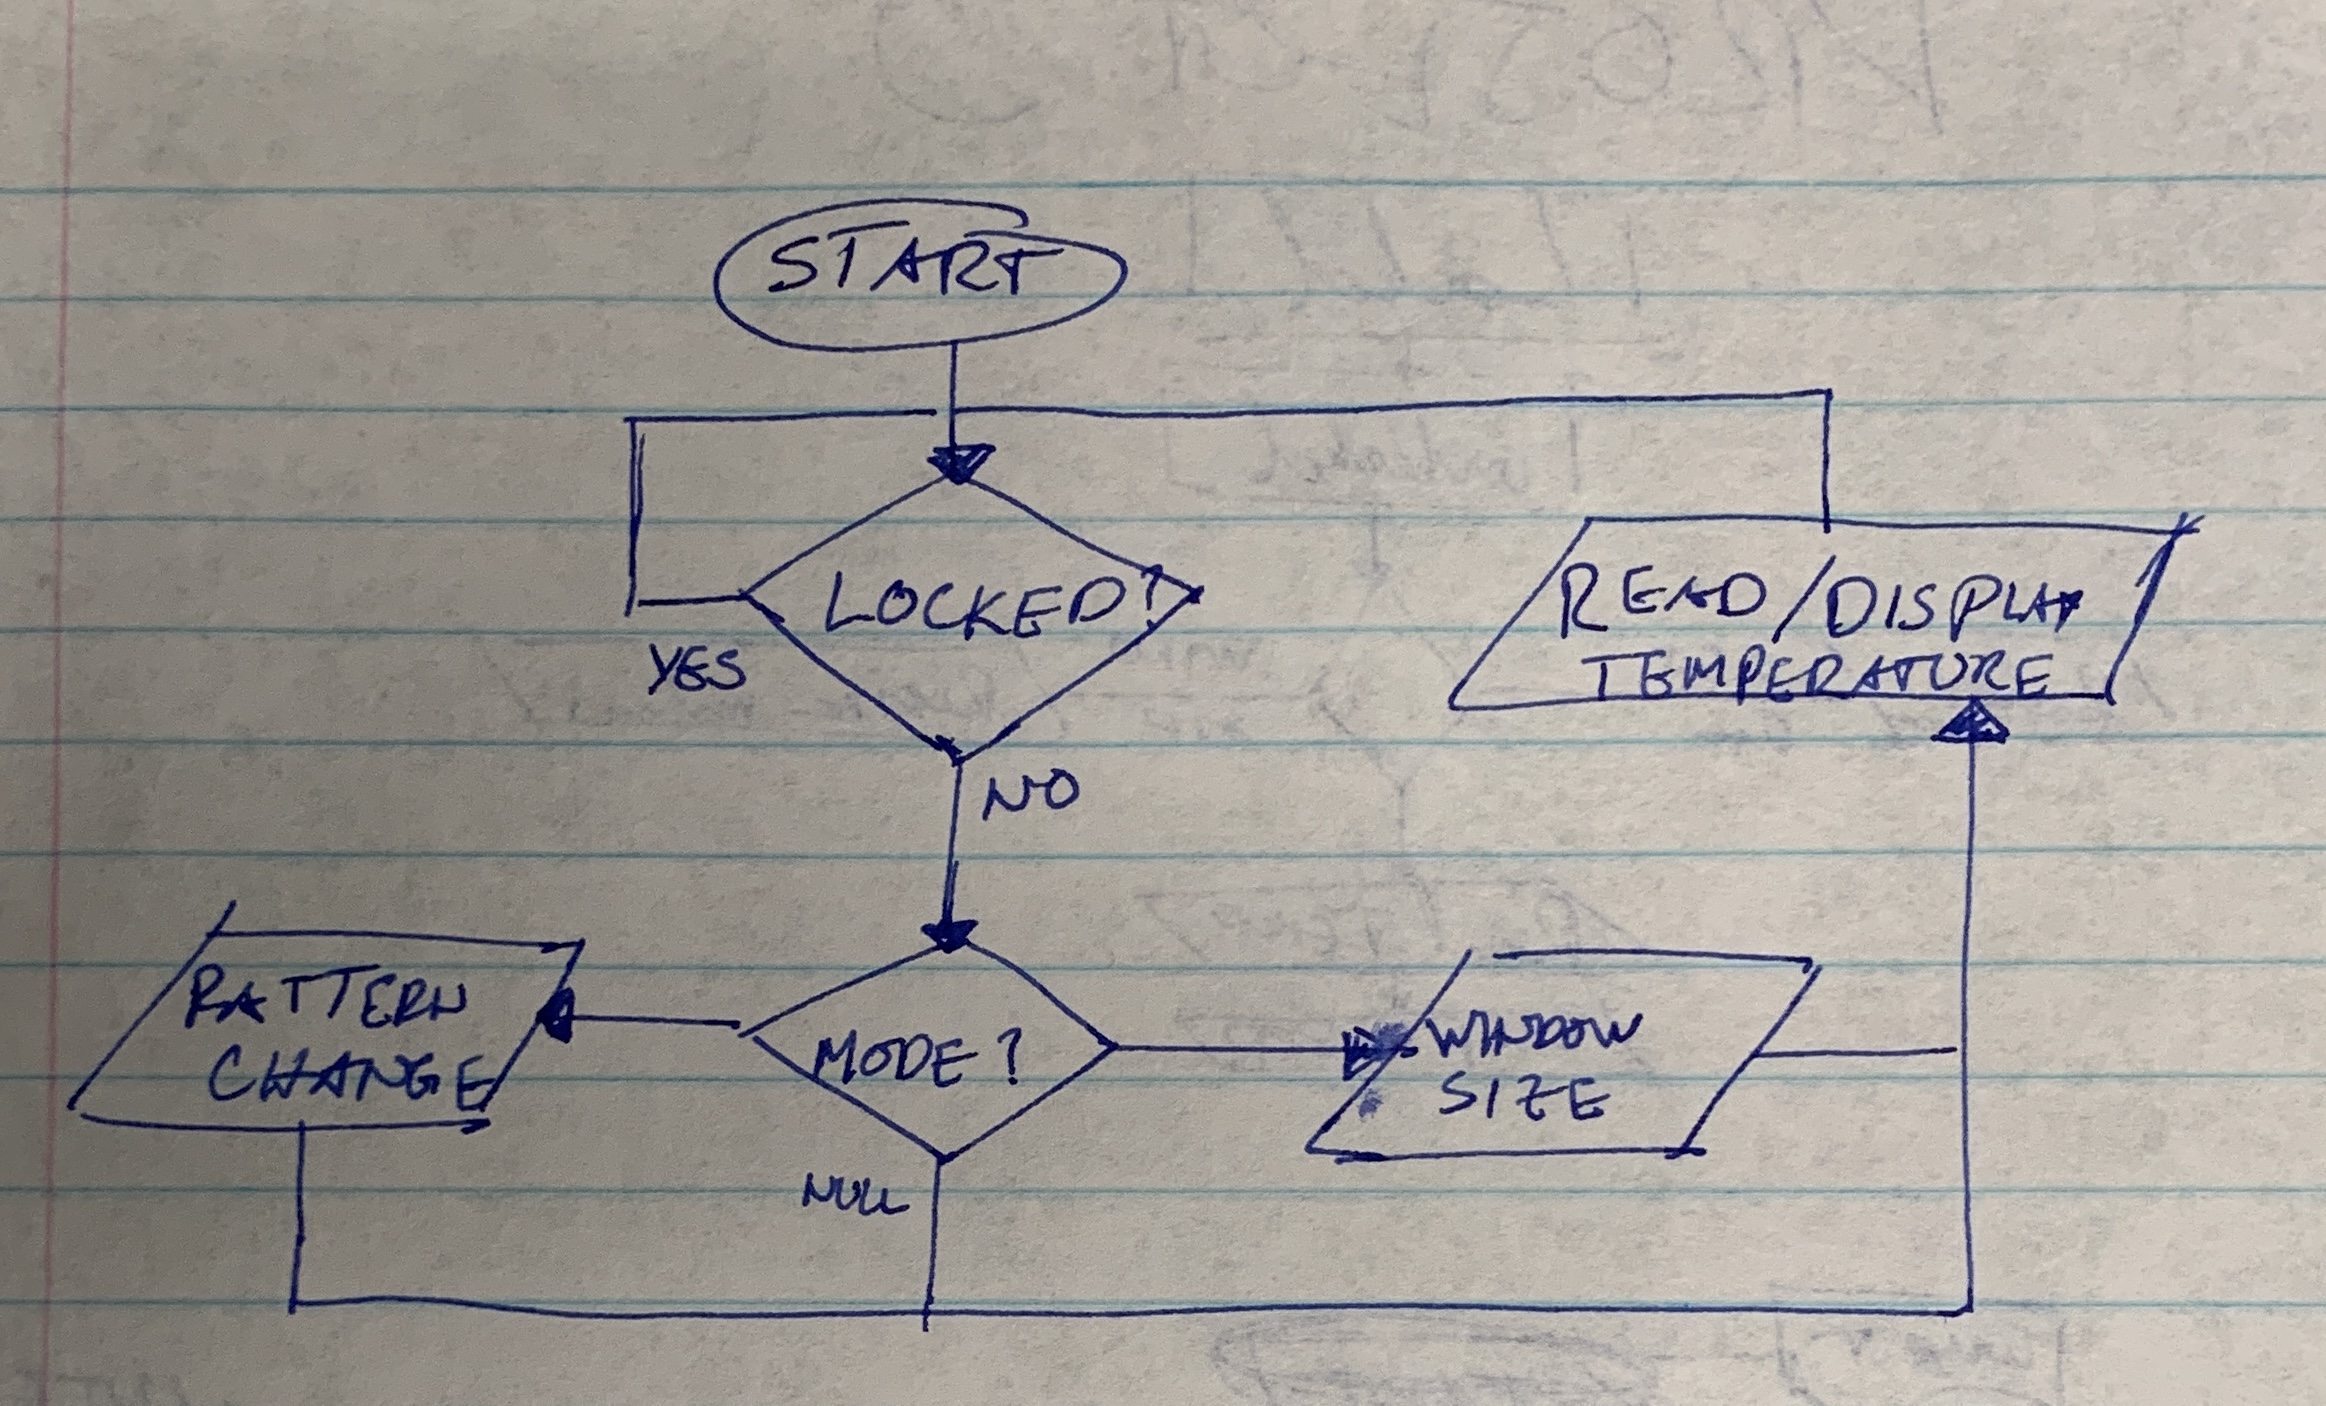 START
LOCKED?
YES
NO
READ/DISPLAY
TEMPERATURE
PATTERN
CHANGE
MODE?
WINDOW
SIZE
NULL